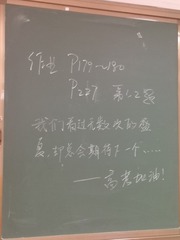 作业 P179~180
P227 第1.2题
我们看过无数次的盛
夏,却总会期待下一个......
——高考加油!